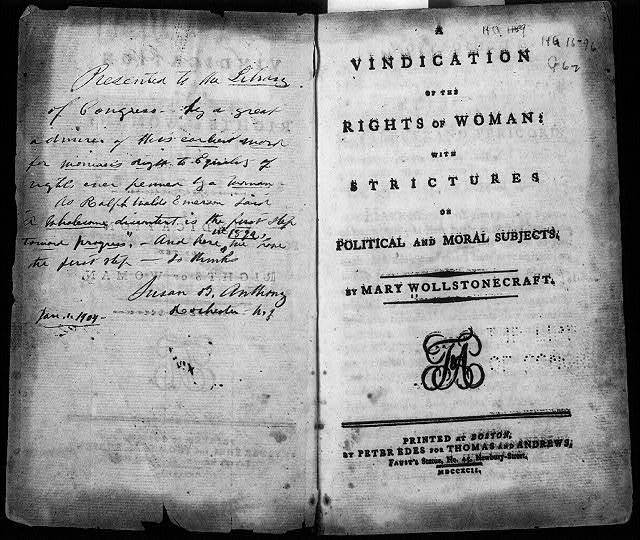 Presented to the Library
of Congress by a great
admirer of this earliest work
for woman's right to Equality of
rights ever penned by a woman
As Ralph Waldo Emerson said
"A Wholesome discontent is the first step
toward progress." - And here, in 1892, we have
the first step - so thinks
Susan B. Anthony
Rochester N.Y.
Jan. 1. 1904 -
A
VINDICATION
OF THE
RIGHTS OF WOMAN:
WITH
STRICTURES
ON
POLITICAL AND MORAL SUBJECTS.
BY MARY WOLLSTONECRAFT.
PRINTED AT BOSTON,
BY PETER EDES FOR THOMAS AND ANDREWS,
FAUST'S Statue, No. 45, Newbury-Street,
MDCCXCII.